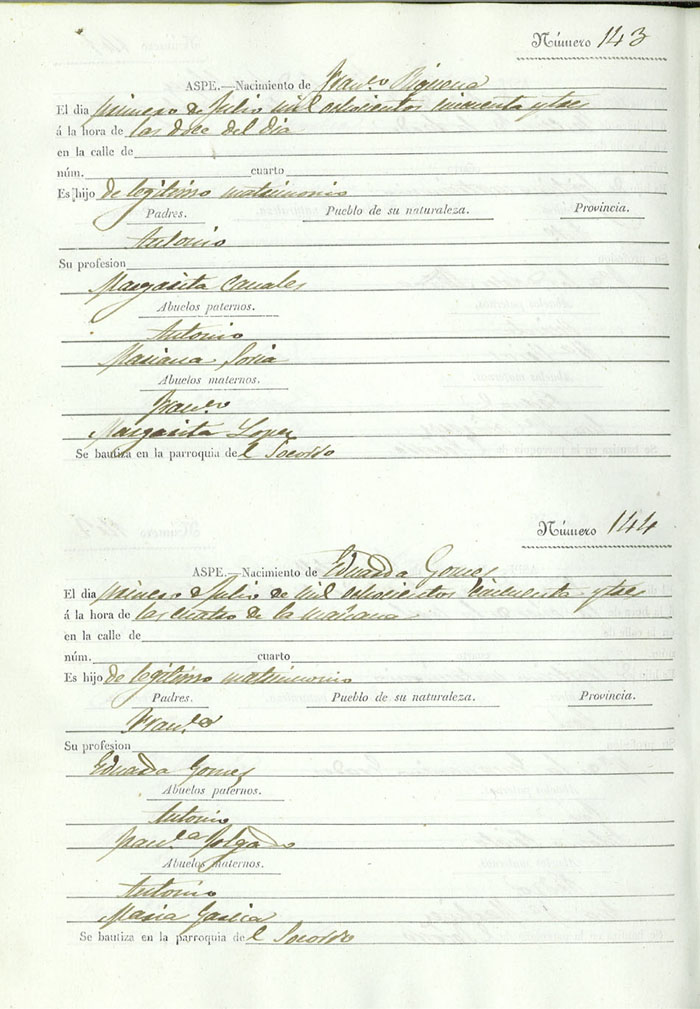 Número 143
ASPE.—Nacimiento de Fran.co Riquena
El dia primero de Julio mil ochosientos cincuenta y tres
á la hora de las doce del dia
en la calle de
núm. cuarto
Es hijo de legitimo matrimonio
Padres. Pueblo de su naturaleza. Provincia.
Antonio
Su profesion
Margarita Canales
Abuelos paternos.
Antonio
Mariana Soria
Abuelos maternos.
Fran.co
Margarita Lopez
Se bautiza en la parroquia de l Socorro
Número 144
ASPE.—Nacimiento de Eduarda Gomes
El dia primero de Julio de mil ochosientos cincuenta y tres
á la hora de las cuatro de la mañana
en la calle de
núm. cuarto
Es hijo de legitimo matrimonio
Padres. Pueblo de su naturaleza. Provincia.
Fran.co
Su profesion
Eduarda Gomes
Abuelos paternos.
Antonio
Fran.ca
Abuelos maternos.
Antonio
Maria Garcia
Se bautiza en la parroquia de l Socorro